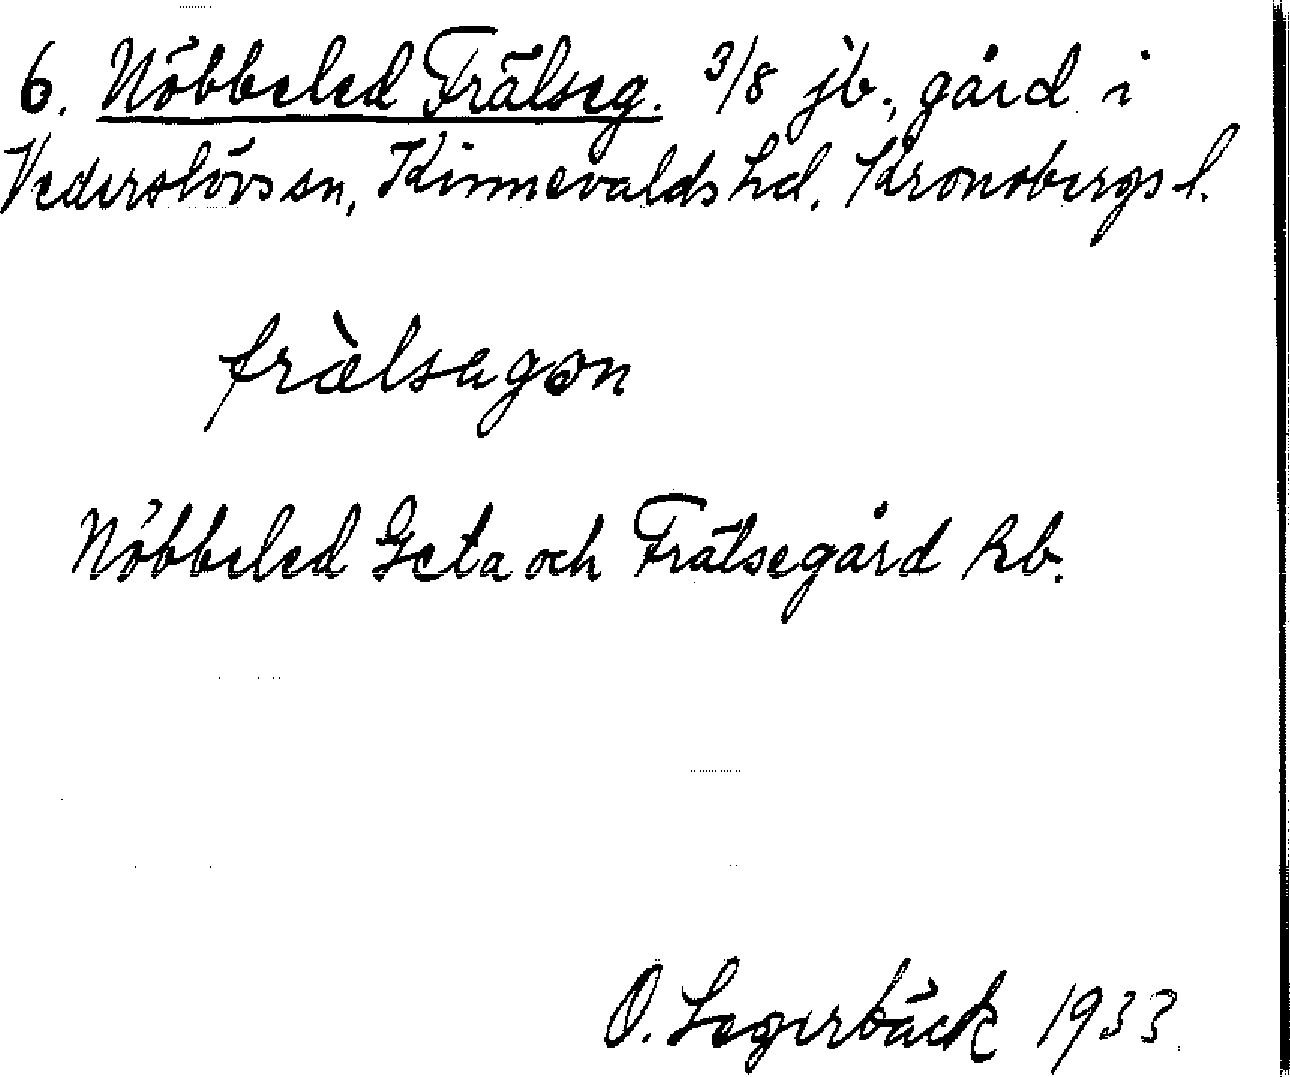 6. Nöbbeled Frälseg. 3/8 jb., gård i
Vederslövs sn, Kinnevalds hd. Kronobergs l.
fràlsagɷn
Nöbbeled Geta och Frälsegård hb.
O. Lagerbäck 1933